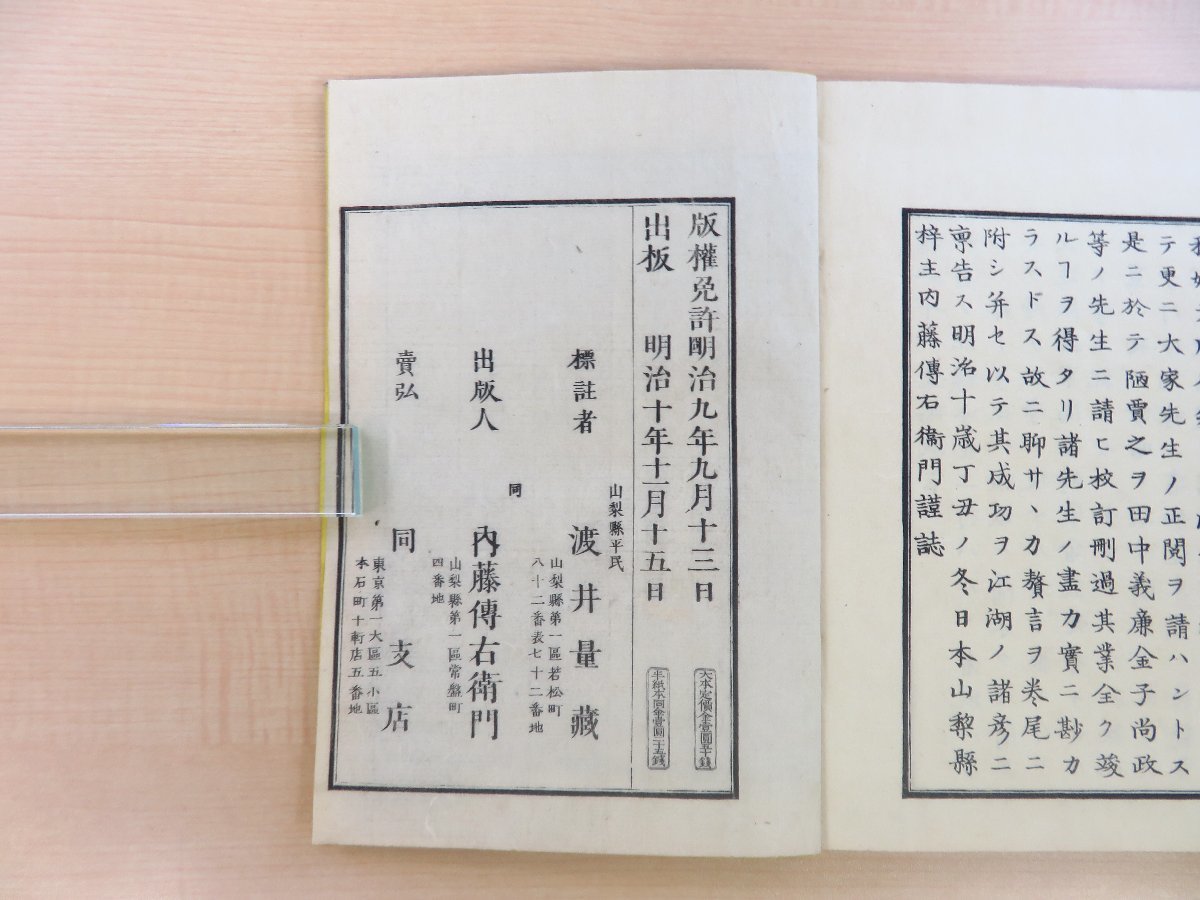 テ更ニ大家先生ノ正閲ヲ請ハントス
是ニ於テ陋賈之ヲ田中義廉金子尚政
等ノ先生ニ請ヒ校訂刪過其業全ク竣
ルヿヲ得タリ諸先生ノ盡力實ニ尠カ
ラスドス故ニ聊サヽカ贅言ヲ巻尾ニ
附シ并セ以テ其成功ヲ江湖ノ諸彦ニ
稟告ス明治十歳丁丑ノ冬日本山梨縣
梓主内藤傳右衞門謹誌
版權免許明治九年九月十三日
大本定價金壹圓五十錢
出板 明治十年十一月十五日
半紙本同金壹圓二十五錢
山梨縣平民
標註者 渡井量藏
山梨縣第一區若松町
八十二番表七十二番地
同
出版人 內藤傳右衛門
山梨縣第一區常盤町
四番地
賣弘 同支店
東京第一大區五小區
本石町十軒店五番地